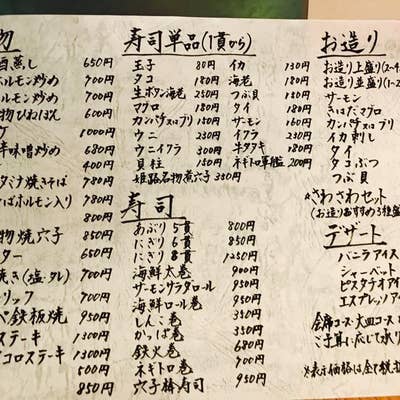 酒蒸し 650円
ホルモン炒め 700円
ホルモン炒め 700円
物ひねぽん 600円
1000円
味噌炒め 680円
400円
タミナ焼きそば 780円
ばホルモン入り 780円
800円
物焼穴子 850円
ター 650円
焼き(塩・タレ) 700円
リック 700円
ペ鉄板焼 950円
ステーキ 1300円
コロステーキ 1300円
500円
850円
寿司単品(1貫から)
玉子 80円
タコ 180円
生ボタン海老 250円
マグロ 180円
カンパチ又はブリ 150円
ウニ 230円
ウニイクラ 300円
貝柱 150円
姫路名物煮穴子 350円
イカ 130円
海老 180円
つぶ貝 150円
タイ 180円
サーモン 160円
イクラ 230円
牛タタキ 180円
ネギトロ軍艦 200円
寿司
あぶり 5貫 800円
にぎり 6貫 850円
にぎり 8貫 1250円
海鮮太巻 900円
サーモンサラダロール 950円
海鮮ロール巻 950円
しんこ巻 300円
かっぱ巻 300円
鉄火巻 700円
ネギトロ巻 700円
穴子棒寿司 950円
お造り
お造り上盛り(2~4
お造り並盛り(1~2
サーモン
きはだマグロ
カンパチ又はブリ
イカ刺し
タイ
タコぶつ
つぶ貝
☆さわさわセット
(お造りおすすめ3種盛
デザート
バニラアイス
シャーベット
ピスタチオアイ
エスプレッソアイ
会席コース・大皿コース
ご予算に応じて承り
※表示価格は全て税